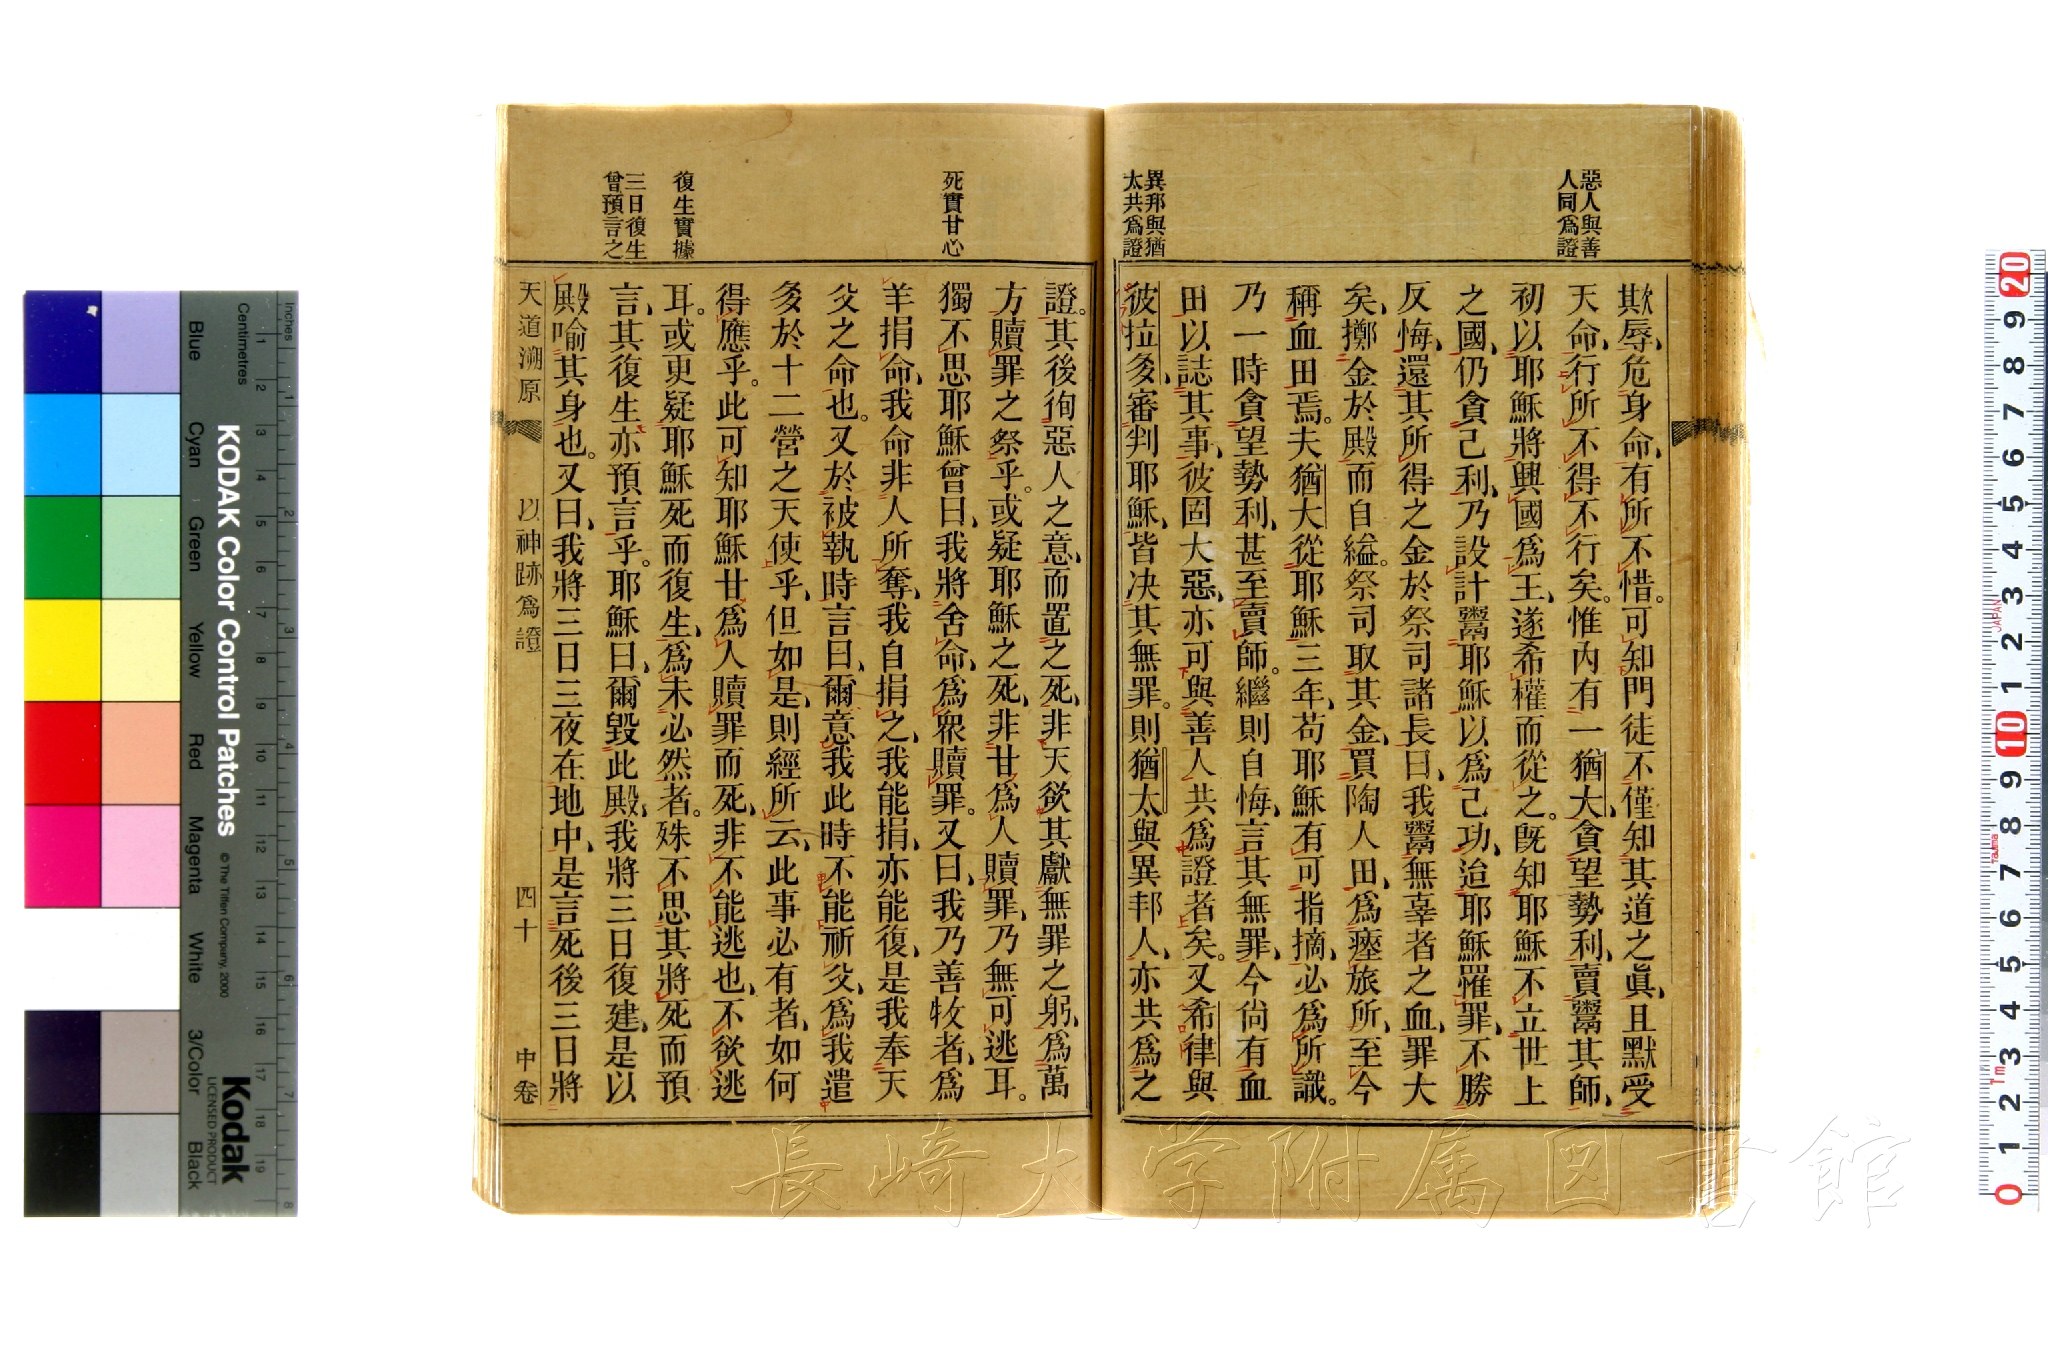 惡人與善
人同爲證
欺辱、危身命、有所不惜。可知門徒不僅知其道之眞、且默受
天命、行所不得不行矣。惟內有一猶大、貪望勢利、賣鬻其師、
初以耶穌將興國爲王、遂希權而從之。旣知耶穌不立世上
之國、仍貪己利、乃設計鬻耶穌以爲己功、迨耶穌罹罪、不勝
反悔、還其所得之金於祭司諸長曰、我鬻無辜者之血、罪大
矣、擲金於殿而自縊。祭司取其金、買陶人田、爲瘞旅所、至今
稱血田焉。夫猶大從耶穌三年、苟耶穌有可指摘、必爲所識。
乃一時貪望勢利、甚至賣師。繼則自悔、言其無罪、今尙有血
田以誌其事、彼固大惡、亦可與善人共爲證者矣。又希律與
彼拉多、審判耶穌、皆決其無罪。則猶太與異邦人、亦共爲之
異邦與猶
太共爲證
證。其後徇惡人之意、而置之死、非天欲其獻無罪之躬、爲萬
方贖罪之祭乎。或疑耶穌之死、非甘爲人贖罪、乃無可逃耳。
獨不思耶穌曾曰、我將舍命、爲衆贖罪。又曰、我乃善牧者、爲
羊捐命、我命非人所奪、我自捐之、我能捐、亦能復、是我奉天
父之命也。又於被執時言曰、爾意我此時不能祈父、爲我遣
多於十二營之天使乎、但如是、則經所云、此事必有者、如何
得應乎。此可知耶穌甘爲人贖罪而死、非不能逃也、不欲逃
耳。或更疑耶穌死而復生、爲未必然者。殊不思其將死而預
言、其復生亦預言乎。耶穌曰、爾毀此殿、我將三日復建、是以
殿喻其身也。又曰、我將三日三夜在地中、是言死後三日將
死實甘心
復生實據
三日復生
曾預言之
天道溯原 以神跡爲證 四十 中卷
長崎大学附属図書館
KODAK Color Control Patches
©The Tiffen Company, 2000
Kodak
LICENSED PRODUCT
Inches
Centimetres
Blue Cyan Green Yellow Red Magenta White 3/Color Black
1 2 3 4 5 6 7 8 9 10 11 12 13 14 15 16 17 18 19
1 2 3 4 5 6 7 8
20 9 8 7 6 5 4 3 2 1 10 9 8 7 6 5 4 3 2 1 0
JAPAN